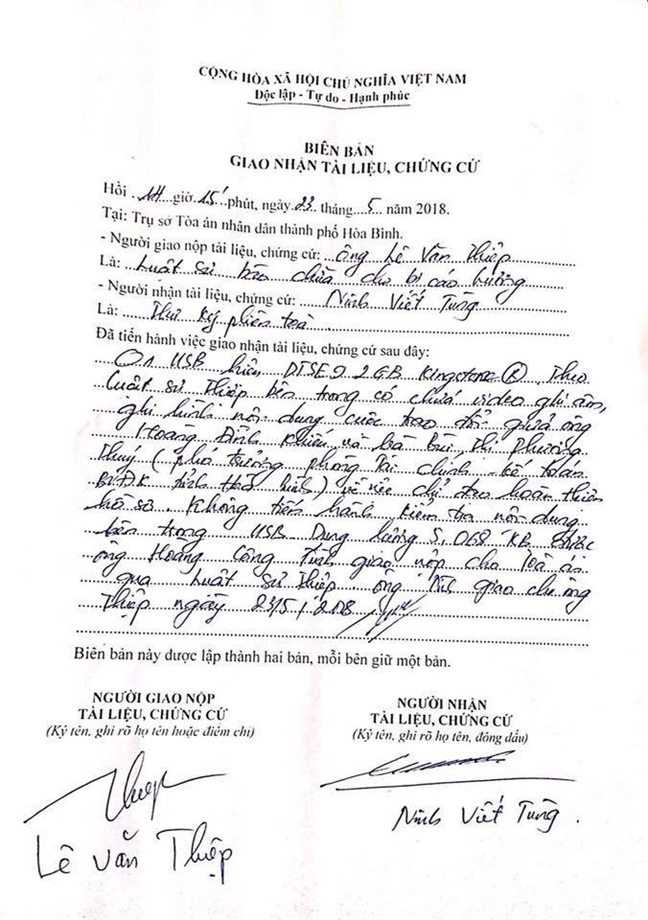 CỘNG HÒA XÃ HỘI CHỦ NGHĨA VIỆT NAM
Độc lập - Tự do - Hạnh phúc
BIÊN BẢN
GIAO NHẬN TÀI LIỆU, CHỨNG CỨ
Hồi 14 giờ 15' phút, ngày 23 tháng 5 năm 2018.
Tại: Trụ sở Tòa án nhân dân thành phố Hòa Bình.
- Người giao nộp tài liệu, chứng cứ: ông Lê Văn Thiệp
Là: Luật sư bào chữa cho bị cáo Lương
- Người nhận tài liệu, chứng cứ: Ninh Viết Tùng
Là: Thư ký phiên toà.
Đã tiến hành việc giao nhận tài liệu, chứng cứ sau đây:
01 USB hiệu DTSE9 2GB Kingstone ®. Theo
Luật sư Thiệp bên trong có chứa video ghi âm,
ghi hình nội dung cuộc trao đổi giữa ông
Hoàng Đình Khiếu và bà Bùi Thị Phương
Thuý (phó trưởng phòng Tài chính - kế toán
BVĐK tỉnh Hoà Bình) về việc chỉ đạo hoàn thiện
hồ sơ. Không tiến hành kiểm tra nội dung
bên trong USB Dung lượng 5.068 KB
ông Hoàng Công Tình giao nộp cho Toà án
qua Luật sư Thiệp. ông Tình giao cho ông
Thiệp ngày 23/5/2018
Biên bản này được lập thành hai bản, mỗi bên giữ một bản.
NGƯỜI GIAO NỘP
TÀI LIỆU, CHỨNG CỨ
(Ký tên, ghi rõ họ tên hoặc điểm chỉ)
Thiệp
Lê Văn Thiệp
NGƯỜI NHẬN
TÀI LIỆU, CHỨNG CỨ
(Ký tên, ghi rõ họ tên, đóng dấu)
Ninh Viết Tùng.